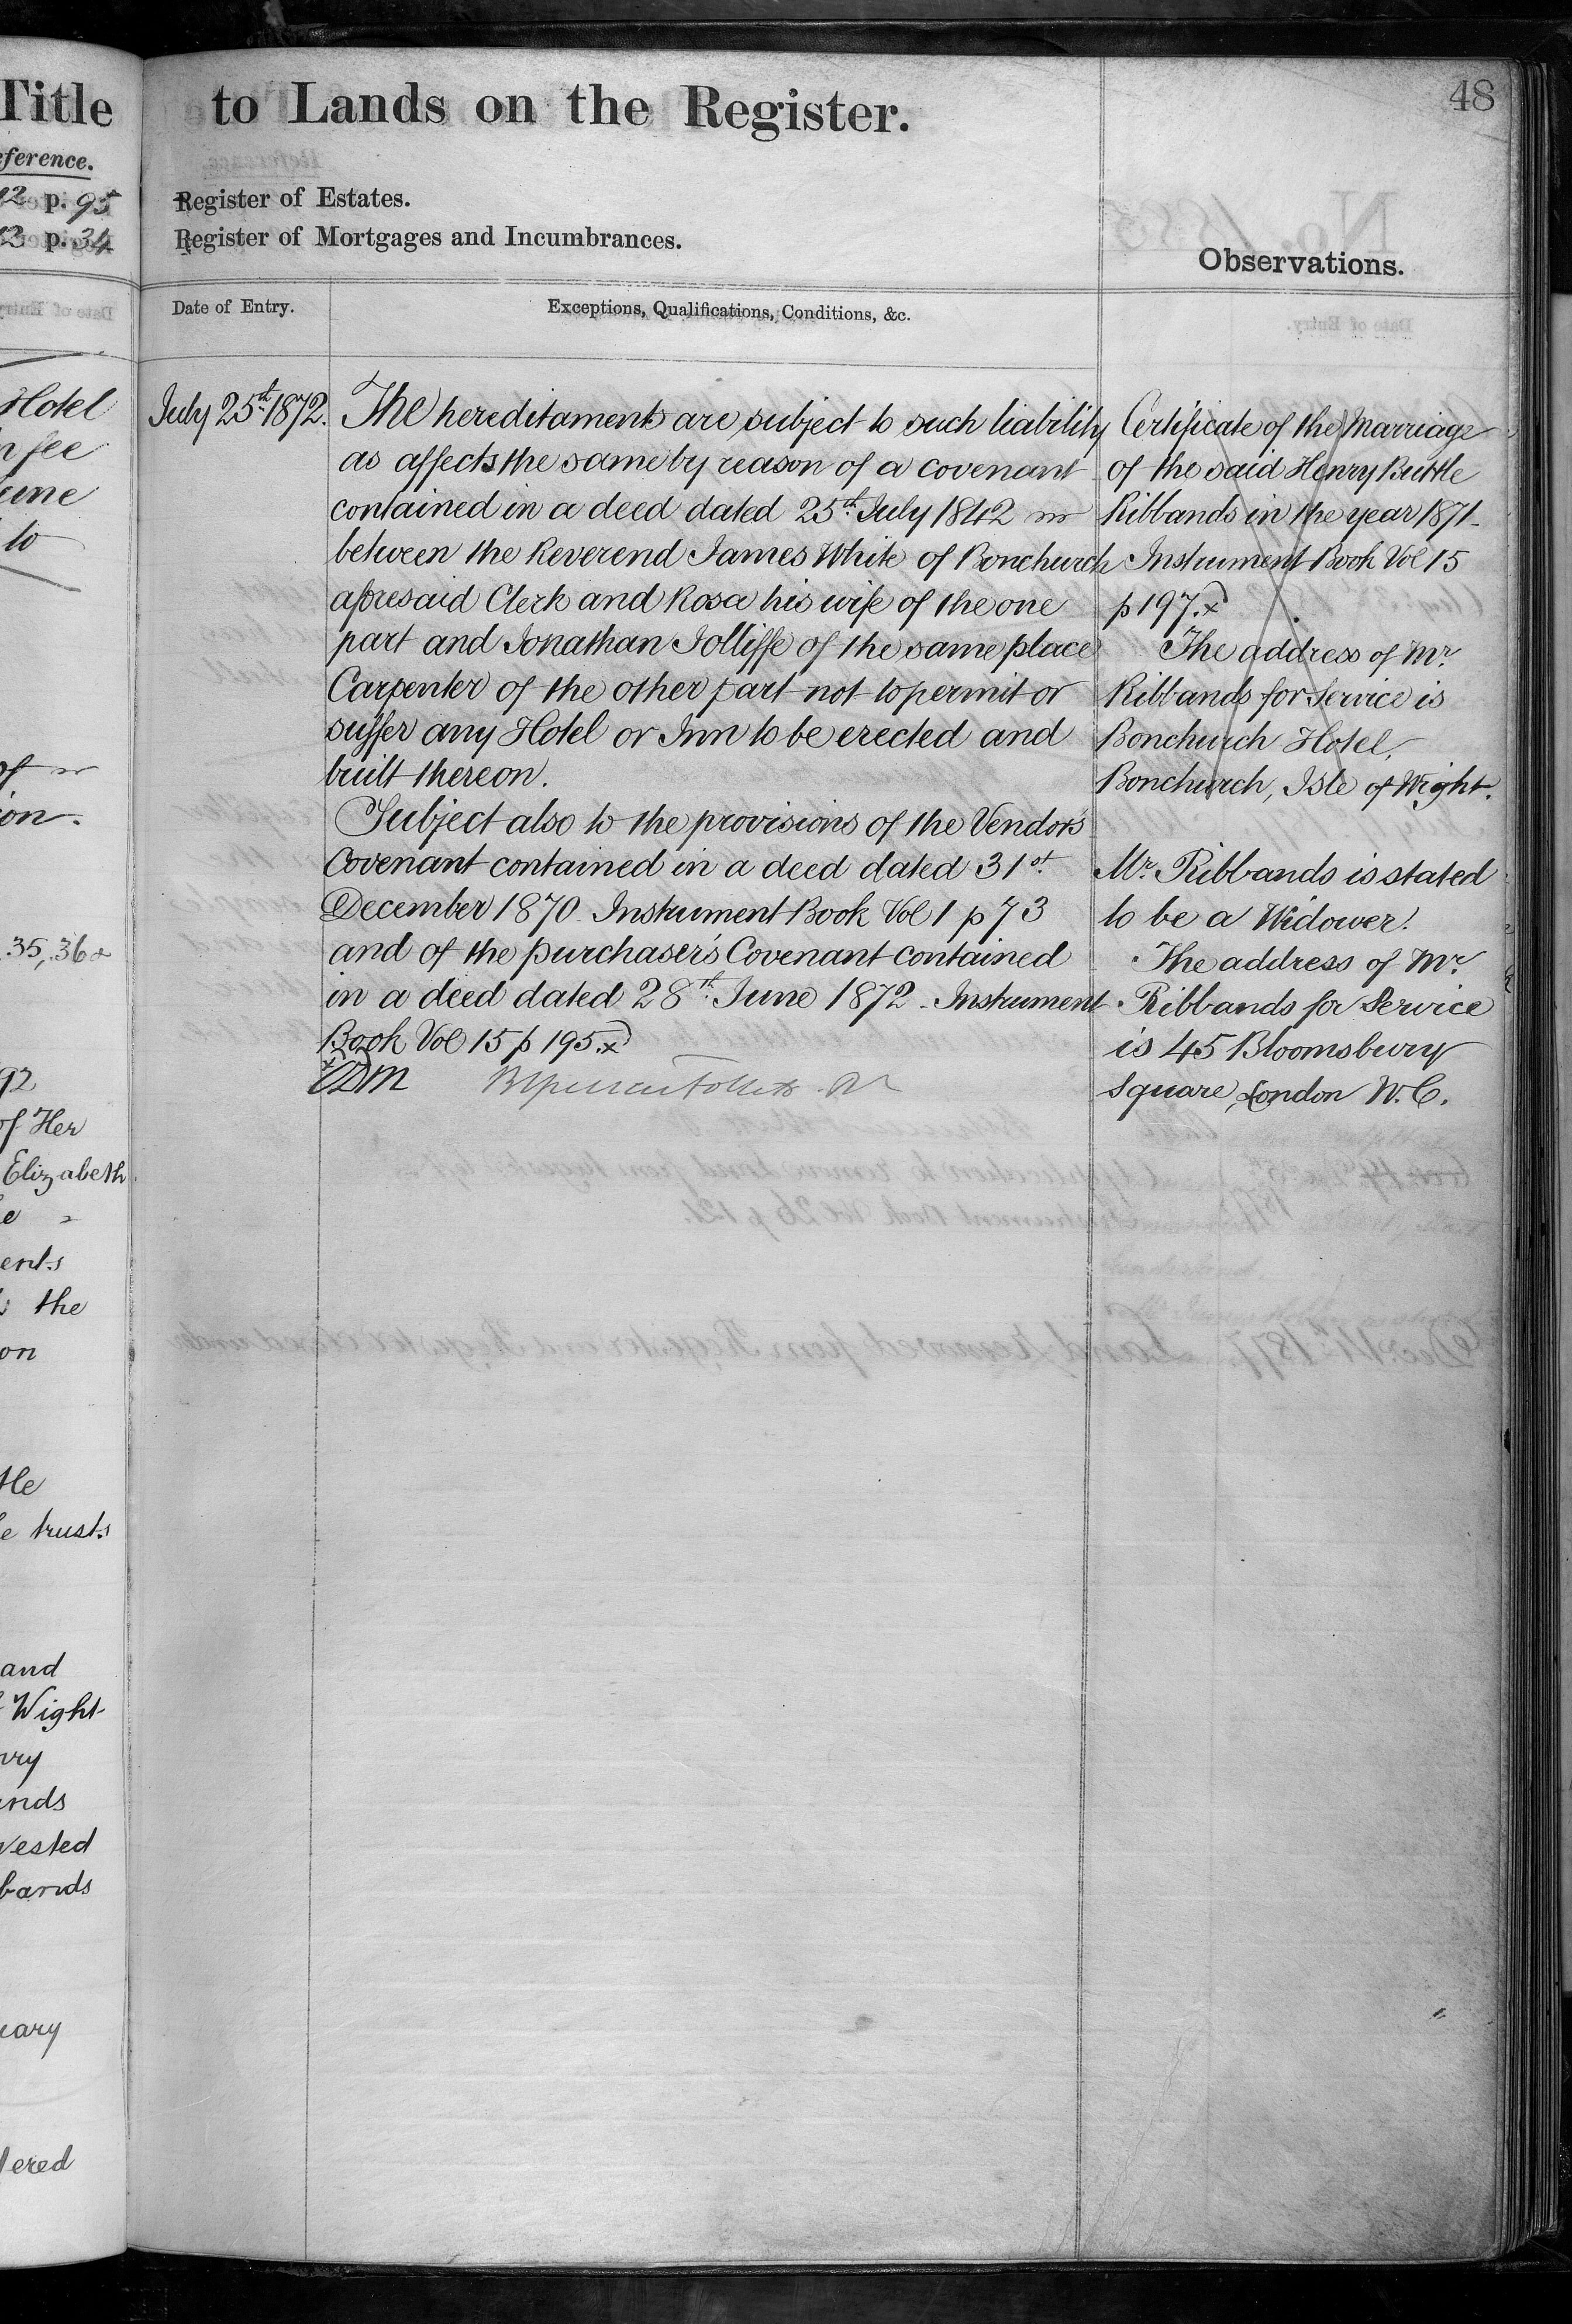 Title
to Lands on the Register.
48
eference.
12 p. 95
12 p. 34
Register of Estates.
Register of Mortgages and Incumbrances.
Observations.
Date of Entry.
Exceptions, Qualifications, Conditions, &c.
Hotel
n fee
une
to
of
ion.
35, 36 &
92
of Her
Elizabeth
e
ents
the
on
tle
e trusts
and
Wight
nry
ands
vested
bands
uary
tered
July 25th 1872.
The hereditaments are subject to such liability
as affects the same by reason of a covenant
contained in a deed dated 25th July 1842
between the Reverend James White of Bonchurch
aforesaid Clerk and Rosa his wife of the one
part and Jonathan Jolliffe of the same place
Carpenter of the other part not to permit or
suffer any Hotel or Inn to be erected and
built thereon.
Subject also to the provisions of the Vendors
Covenant contained in a deed dated 31st
December 1870 Instrument Book Vol 1 p 73
and of the purchaser's Covenant contained
in a deed dated 28th June 1872 - Instrument
Book Vol 15 p 195. x
Certificate of the Marriage
of the said Henry Buttle
Ribbands in the year 1871 -
Instrument Book Vol 15
p 197. x
The address of Mr.
Ribbands for Service is
Bonchurch Hotel,
Bonchurch, Isle of Wight.
Mr. Ribbands is stated
to be a Widower.
The address of Mr.
Ribbands for Service
is 45 Bloomsbury
Square, London W.C.